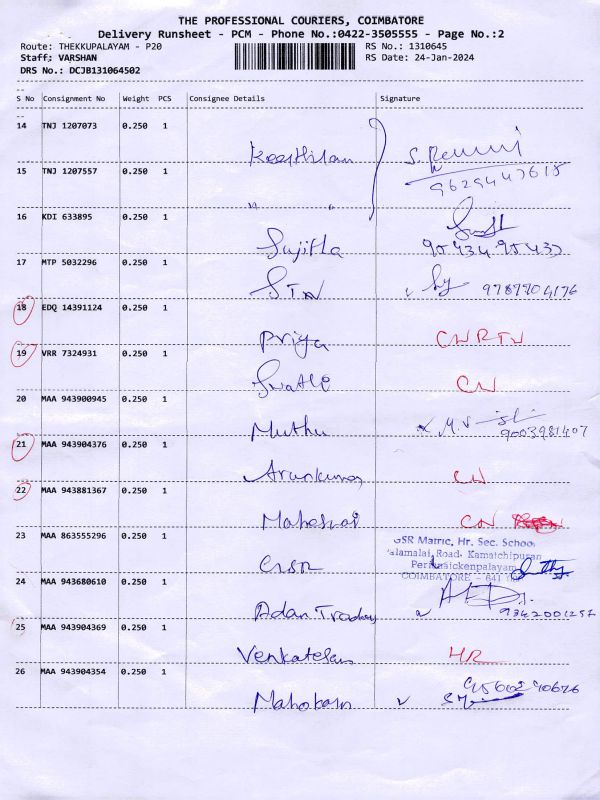 THE PROFESSIONAL COURIERS, COIMBATORE
Delivery Runsheet - PCM - Phone No.:0422-3505555 - Page No.:2
Route: THEKKUPALAYAM - P20 RS No.: 1310645
Staff: VARSHAN RS Date: 24-Jan-2024
DRS No.: DCJB131064502
--
S No Consignment No Weight PCS Consignee Details Signature
--
14 TNJ 1207073 0.250 1
Keerthivan
15 TNJ 1207557 0.250 1
" "
16 KDI 633895 0.250 1
Sujitha
17 MTP 5032296 0.250 1
STN 9787704176
18 EDQ 14391124 0.250 1
Priya CN RTN
19 VRR 7324931 0.250 1
Swathi CN
20 MAA 943900945 0.250 1
Muthu M.V 9003981407
21 MAA 943904376 0.250 1
Arunkumar CN
22 MAA 943881367 0.250 1
CN
23 MAA 863555296 0.250 1
GSR Matric, Hr. Sec. School
Road, Kamatchipuram
Perianaickenpalayam
GSR COIMBATORE - 641
24 MAA 943680610 0.250 1
9342001257
25 MAA 943904369 0.250 1
Venkatesan HR
26 MAA 943904354 0.250 1